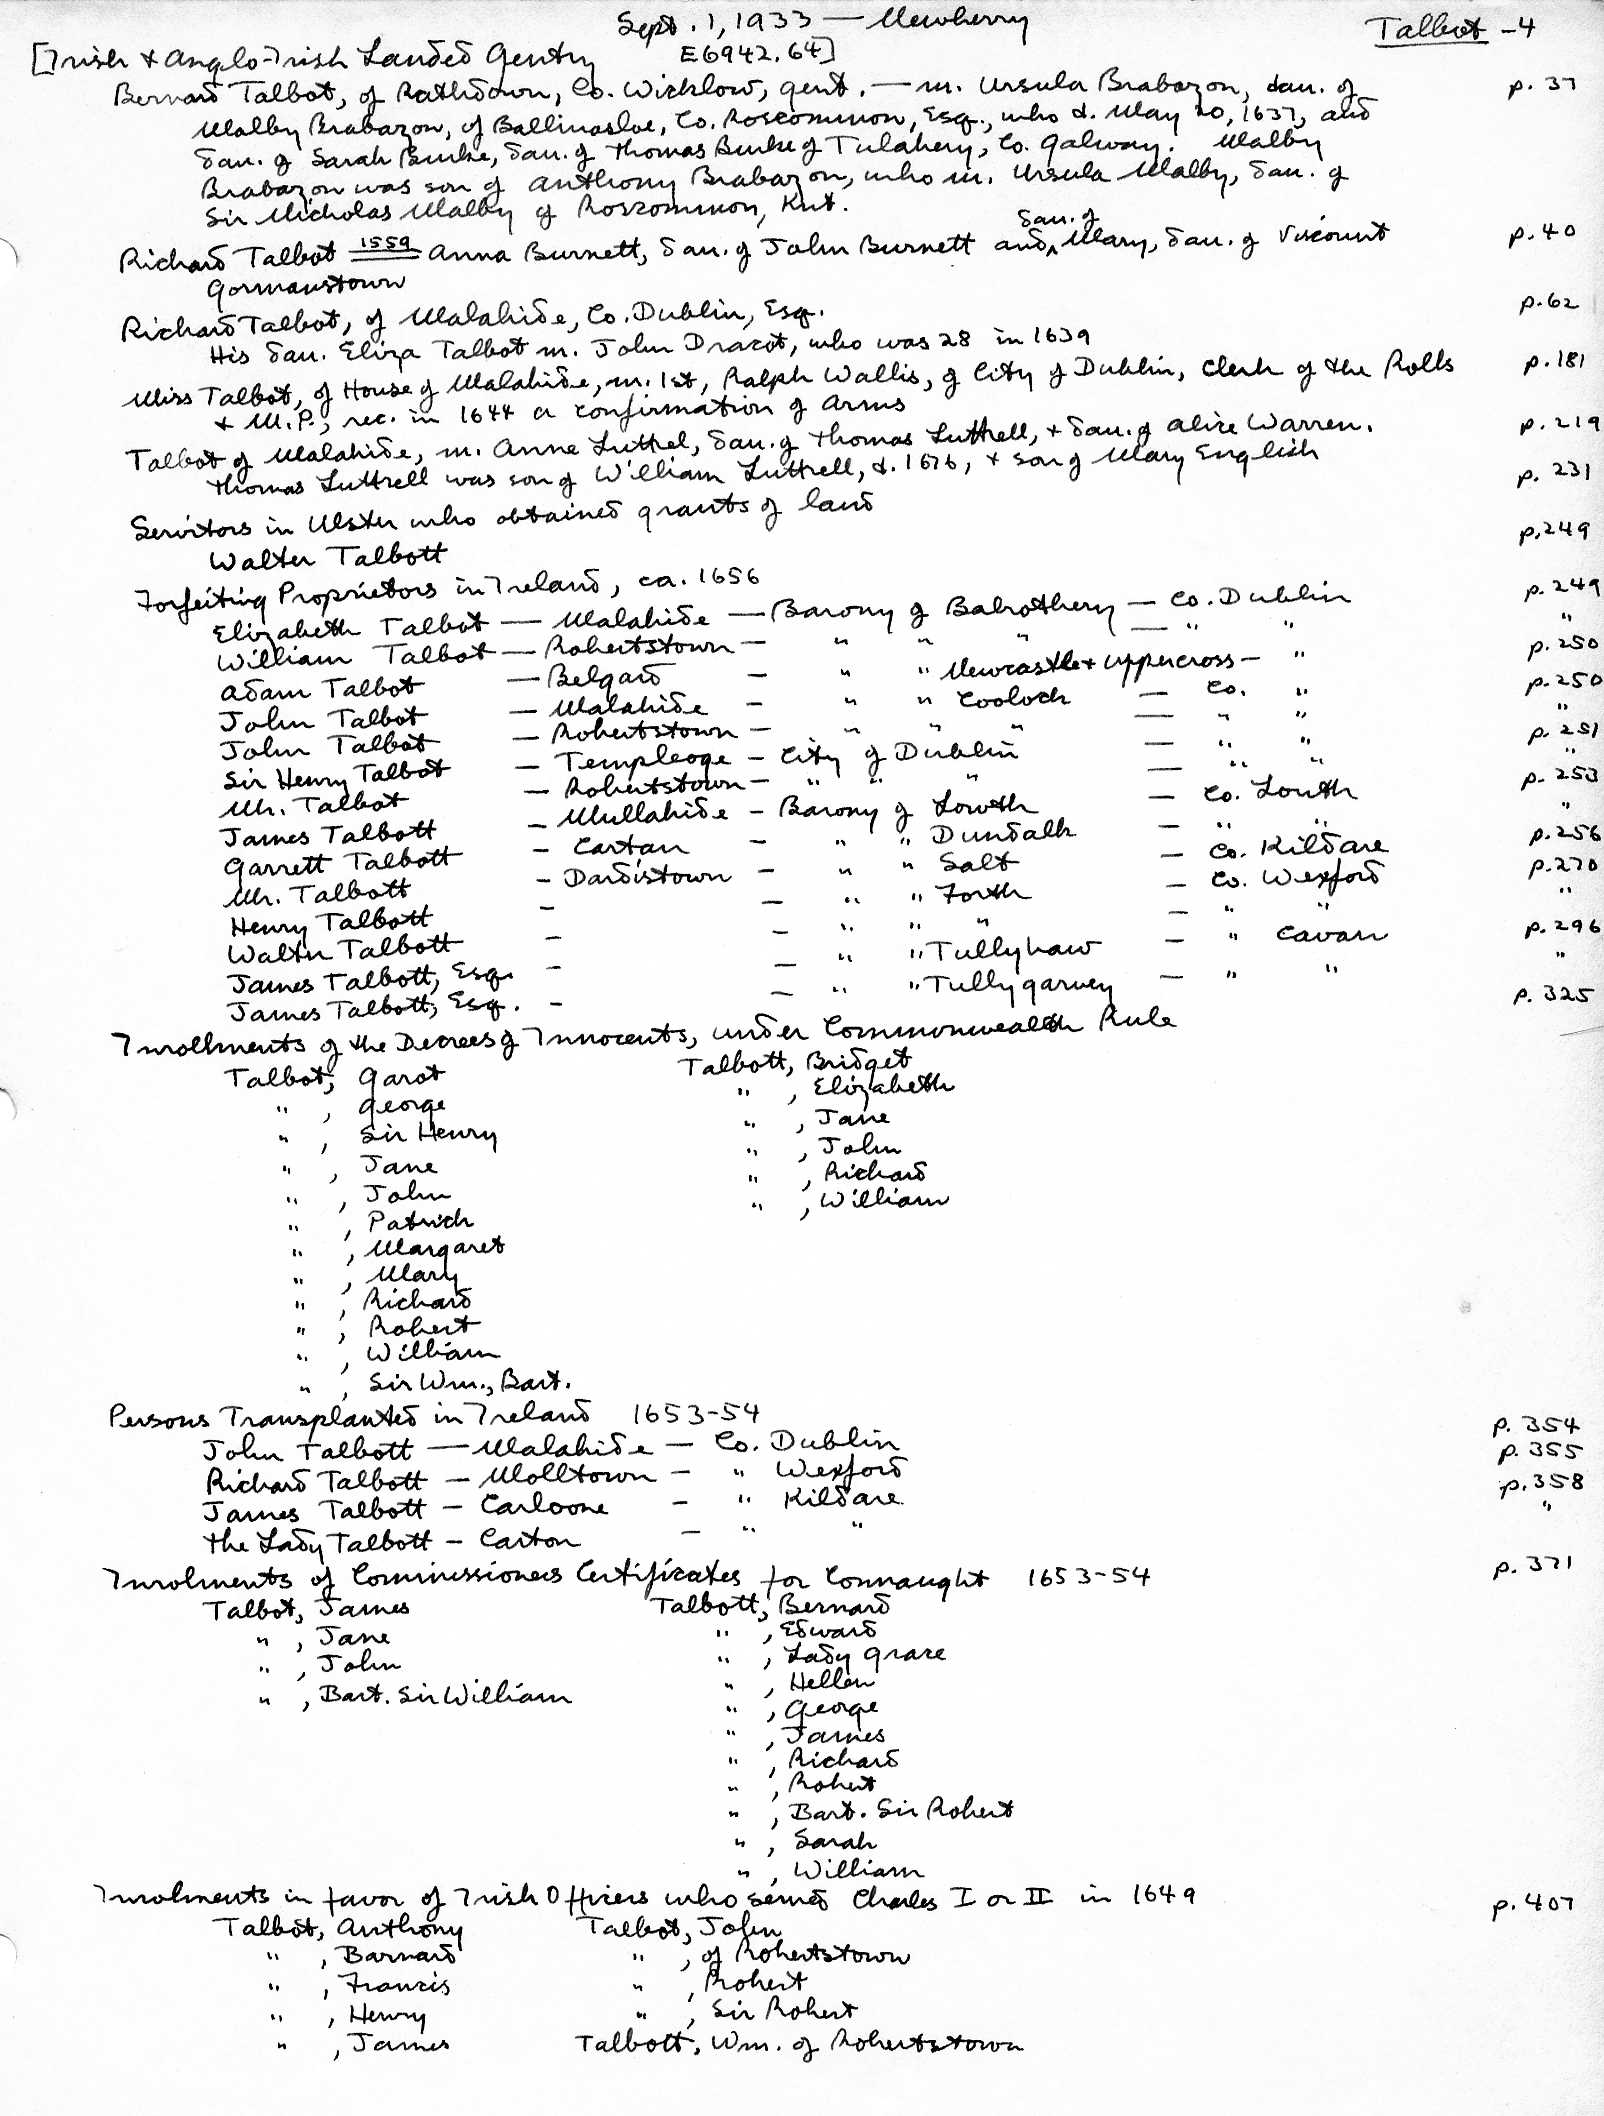 Sept. 1, 1933 — Newberry
Talbot -4
[Irish & Anglo-Irish Landed Gentry E6942.64]
Bernard Talbot, of Rathdown, Co. Wicklow, gent. — m. Ursula Brabazon, dau. of p. 37
Malby Brabazon, of Ballinasloe, Co. Roscommon, Esq., who d. May 20, 1637, and
dau. of Sarah Burke, dau. of Thomas Burke of Tulahery, Co. Galway. Malby
Brabazon was son of Anthony Brabazon, who m. Ursula Malby, dau. of
Sir Nicholas Malby of Roscommon, Knt.
Richard Talbot 1559 Anna Burnett, dau. of John Burnett and dau. of Mary, dau. of Viscount p. 40
Gormanstown
Richard Talbot, of Malahide, Co. Dublin, Esq. p. 62
His dau. Eliza Talbot m. John Dracot, who was 28 in 1639
Miss Talbot, of House of Malahide, m. 1st, Ralph Wallis, of City of Dublin, Clerk of the Rolls p. 181
& M.P., rec. in 1644 a confirmation of arms
Talbot of Malahide, m. Anne Luttrel, dau. of Thomas Luttrell, & dau. of Alice Warren. p. 219
Thomas Luttrell was son of William Luttrell, d. 1676, & son of Mary English
Servitors in Ulster who obtained grants of land p. 231
Walter Talbott
Forfeiting Proprietors in Ireland, ca. 1656 p. 249
Elizabeth Talbot — Malahide — Barony of Balrothery — Co. Dublin p. 249
William Talbot — Robertstown — " " " — " " "
Adam Talbot — Belgard — " " Newcastle & Uppercross — " p. 250
John Talbot — Malahide — " " Coolock — Co. " p. 250
John Talbot — Robertstown — " " " — " " "
Sir Henry Talbot — Templeoge — City of Dublin — " " p. 251
Mr. Talbot — Robertstown — " " " — " " "
James Talbott — Mullahide — Barony of Lowth — Co. Louth p. 253
Garrett Talbott — Cartan — " " Dundalk — " " "
Mr. Talbott — Dardistown — " " Salt — Co. Kildare p. 256
Henry Talbott — — " " Forth — Co. Wexford p. 270
Walter Talbott — — " " " — " " "
James Talbott, Esq. — — " " Tullyhaw — " Cavan p. 296
James Talbott, Esq. — — " " Tullygarvey — " " "
Inrollments of the Decrees of Innocents, under Commonwealth Rule p. 325
Talbot, Garot Talbott, Bridget
" , George " , Elizabeth
" , Sir Henry " , Jane
" , Jane " , John
" , John " , Richard
" , Patrick " , William
" , Margaret
" , Mary
" , Richard
" , Robert
" , William
" , Sir Wm., Bart.
Persons Transplanted in Ireland 1653-54
John Talbott — Malahide — Co. Dublin p. 354
Richard Talbott — Molltown — " Wexford p. 355
James Talbott — Carloone — " Kildare p. 358
The Lady Talbott — Carton — " " "
Inrolments of Commissioners Certificates for Connaught 1653-54 p. 371
Talbot, James Talbott, Bernard
" , Jane " , Edward
" , John " , Lady Grace
" , Bart. Sir William " , Hellen
" , George
" , James
" , Richard
" , Robert
" , Bart. Sir Robert
" , Sarah
" , William
Inrolments in favor of Irish Officers who served Charles I or II in 1649 p. 407
Talbot, Anthony Talbot, John
" , Barnard " , of Robertstown
" , Francis " , Robert
" , Henry " , Sir Robert
" , James Talbott, Wm. of Robertstown